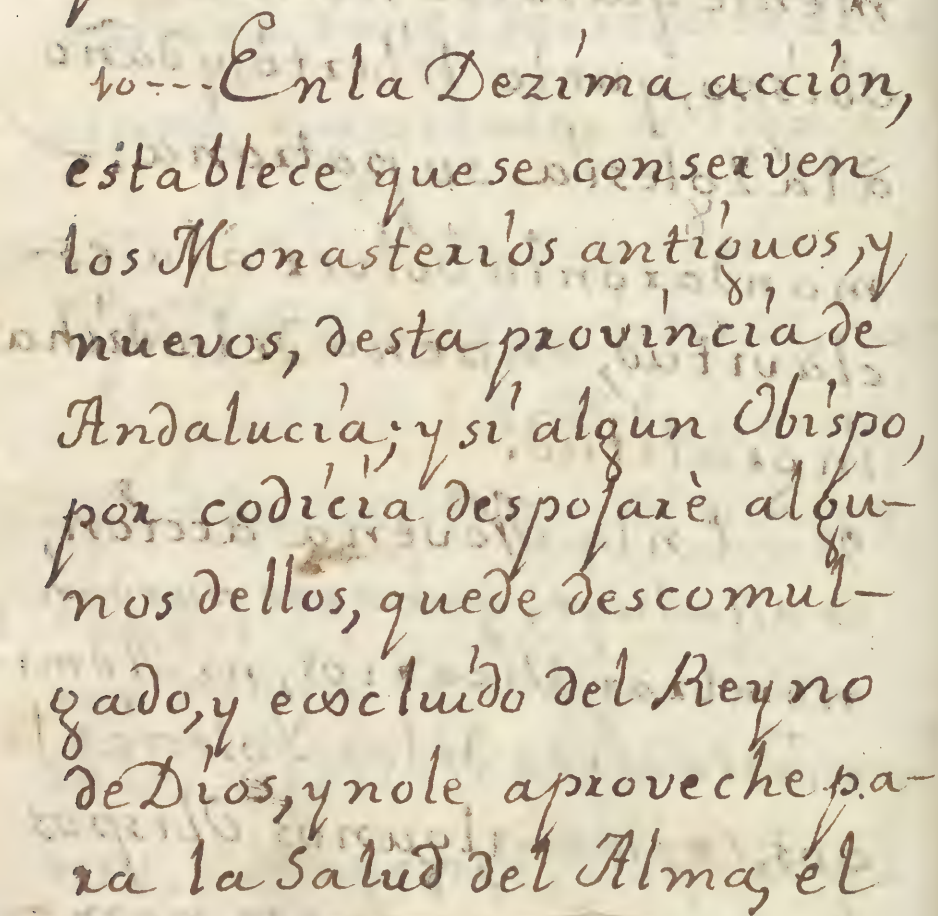 10---En la Dezima acción,
establece que se conserven
los Monasterios antiguos, y
nuevos, desta provincia de
Andalucia; y si algun Obispo,
por codicia despojarè algu-
nos dellos, quede descomul-
gado, y excluido del Reyno
de Dios, y no le aproveche pa-
ra la Salud del Alma, él